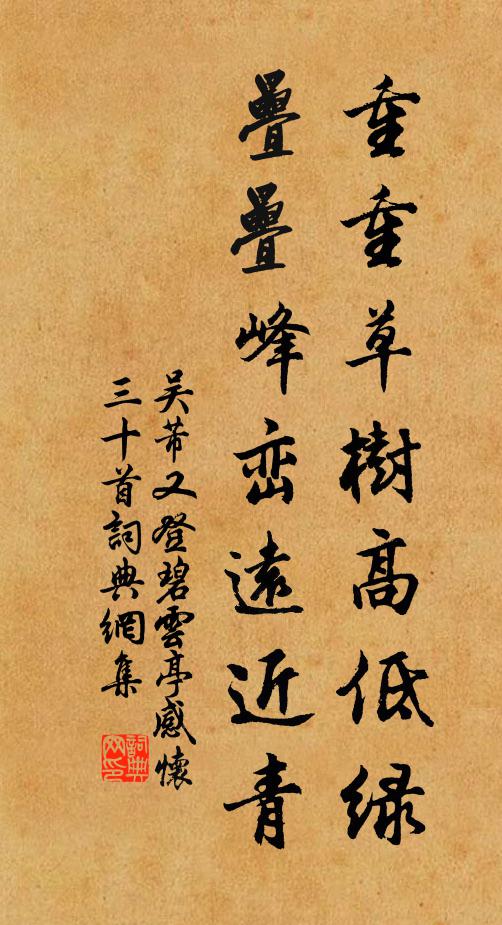 重重草樹高低綠
疊疊峰巒遠近青
吴芾又登碧雲亭感懷
三十首詞典網集
詞典網印